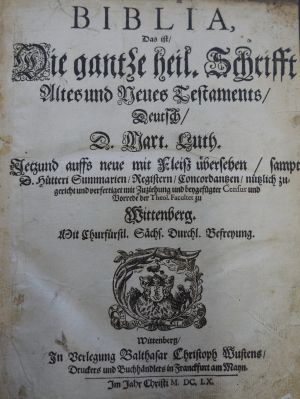 BIBLIA,
Das ist/
Die gantze heil. Schrifft
Altes und Neues Testaments/
Deutsch/
D. Mart. Luth.
Jetzund auffs neue mit Fleiß übersehen / sampt
D. Hütteri Summarien/ Registern/ Concordantzen/ nützlich zu-
gericht und verfertiget mit Zuziehung und beygefügter Censur und
Vorrede der Theol. Facultet zu
Wittenberg.
Mit Churfürstl. Sächs. Durchl. Befreyung.
Wittenberg/
In Verlegung Balthasar Christoph Wustens/
Druckers und Buchhändlers in Franckfurt am Mayn.
Im Jahr Christi M. DC. LX.